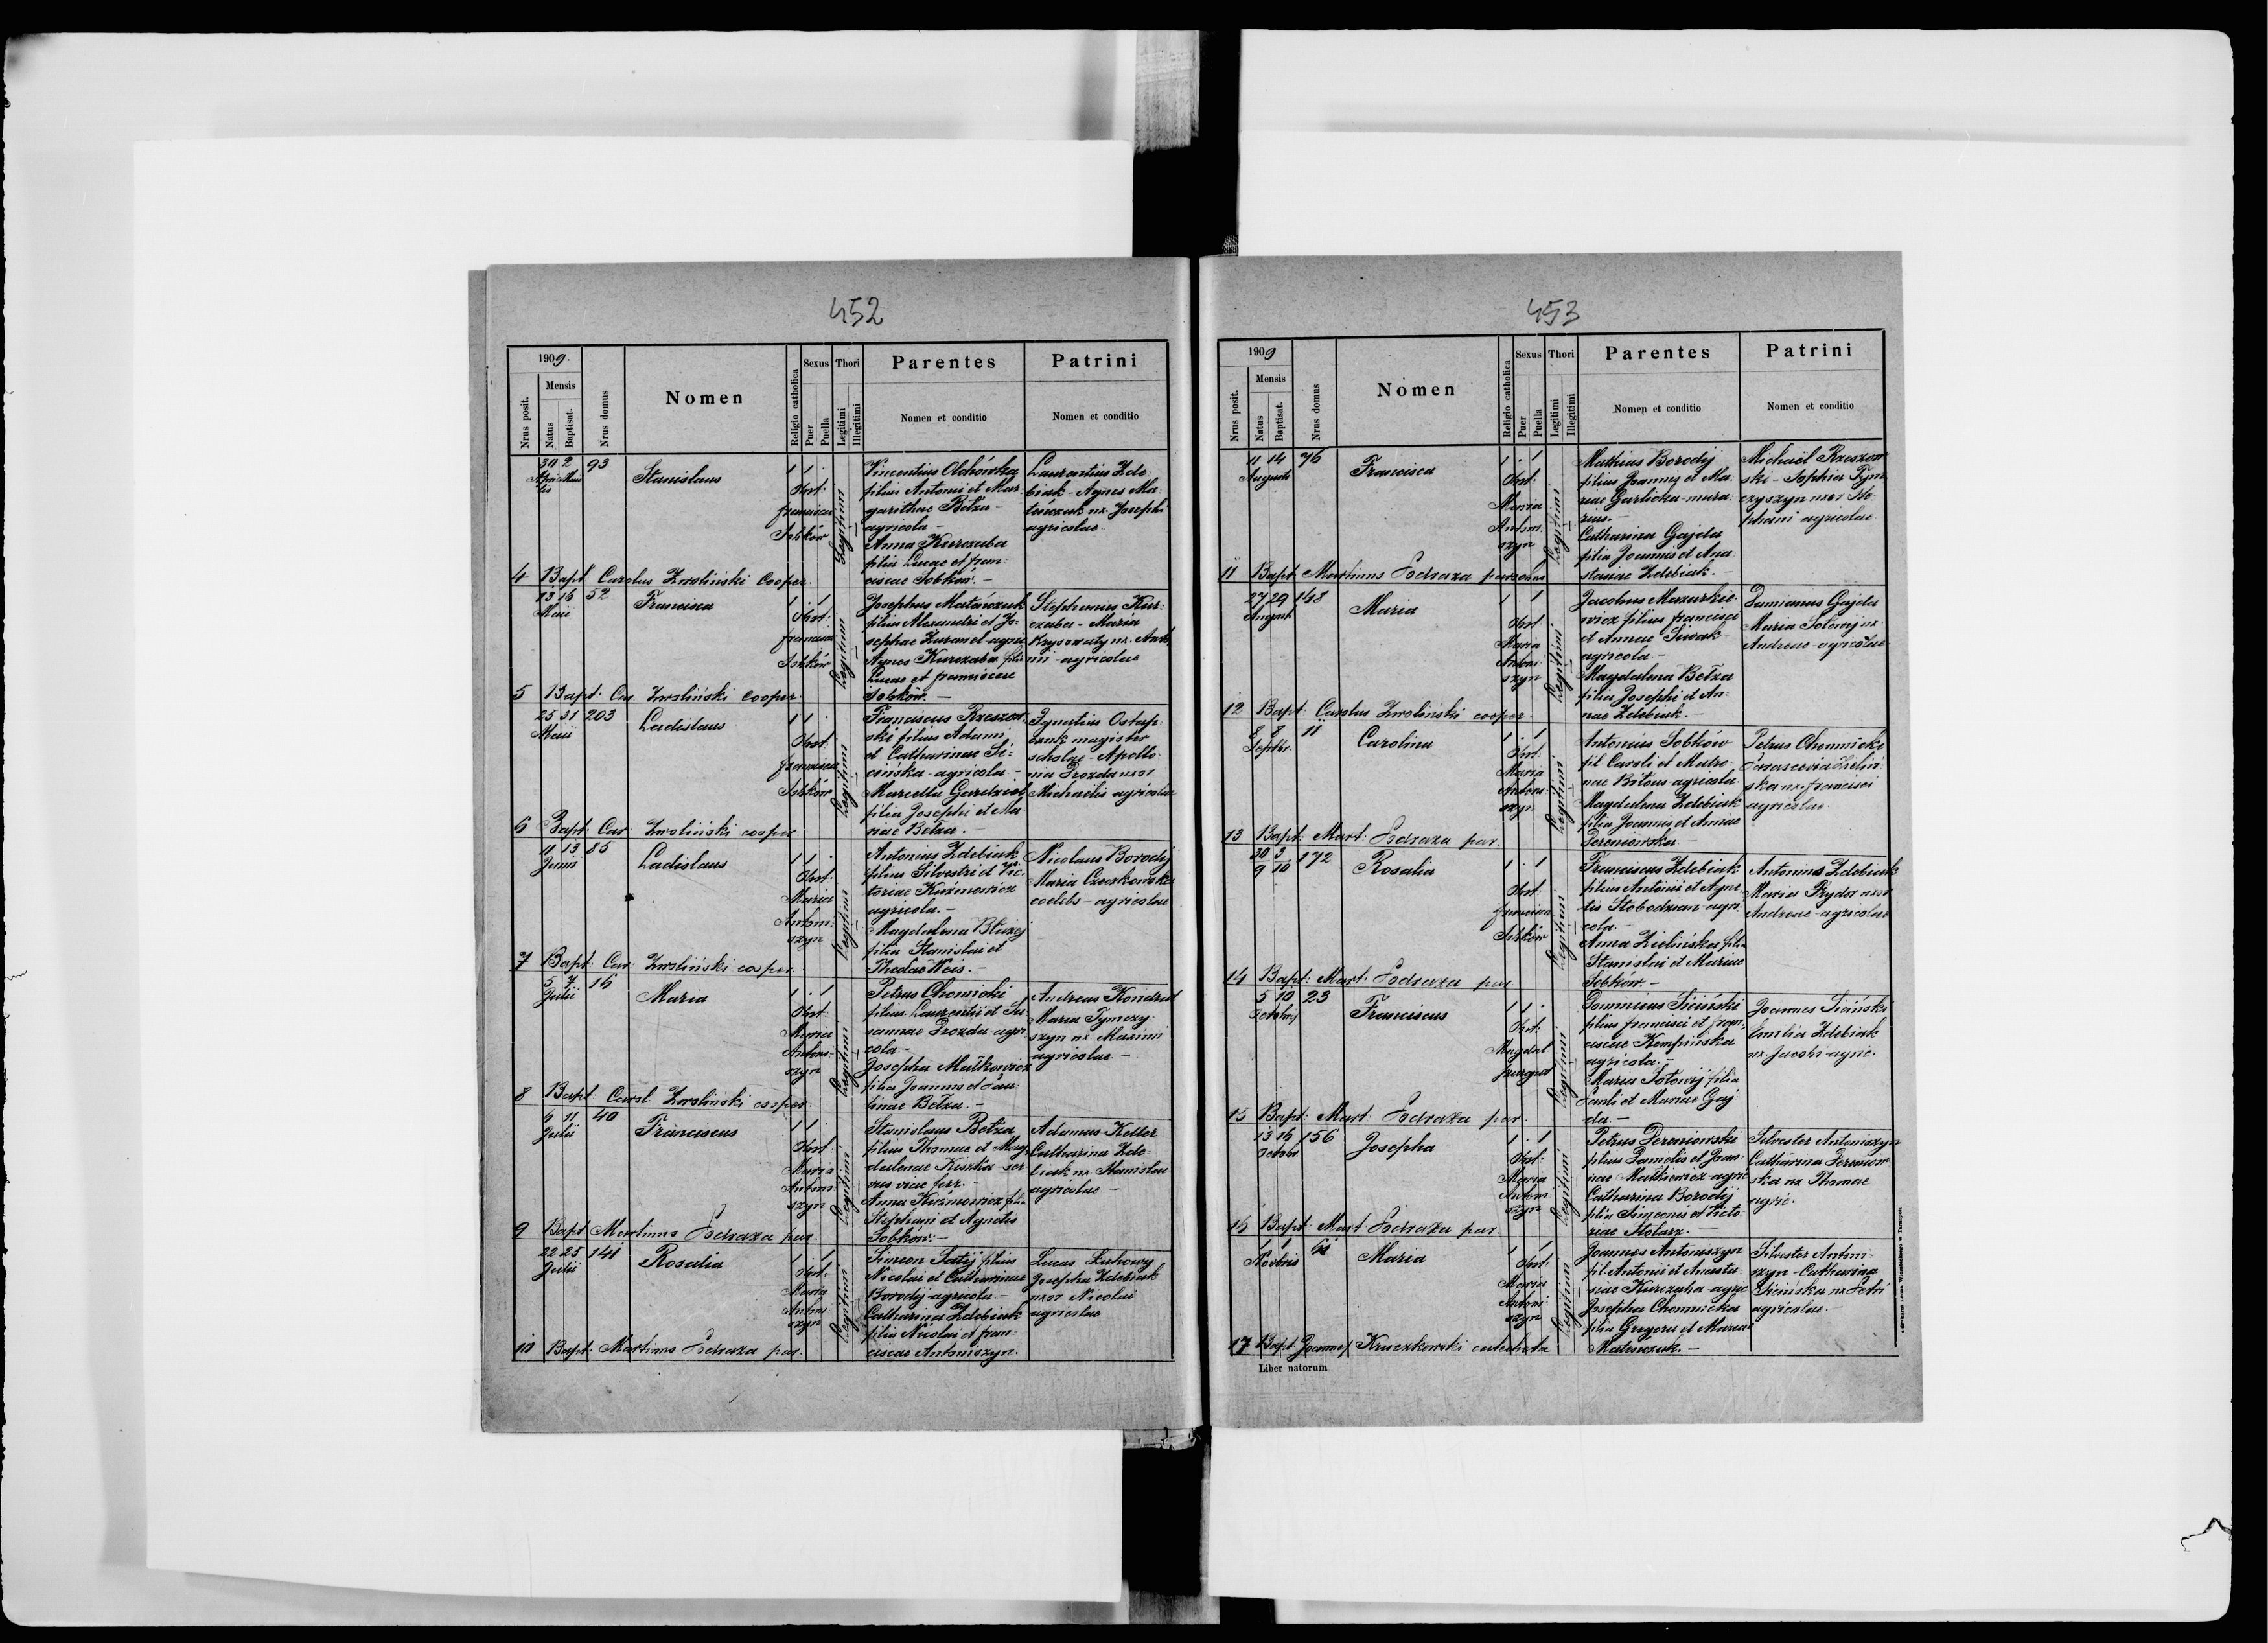 452
1909.
Nrus posit.
Mensis
Natus
Baptisat.
Nrus domus
Nomen
Religio catholica
Sexus
Puer
Puella
Thori
Legitimi
Illegitimi
Parentes
Nomen et conditio
Patrini
Nomen et conditio
30 2 93 Stanislaus 1 1
Aprilis Maii
Obst:
francisca
Sobków
Legitimi
Vincentius
filius Antonii et Mar-
garithae Bełza -
agricola -
Anna Kurczaba
filia Lucae et fran-
ciscae Sobków. -
Laurentius Zde-
biak - Agnes Ma-
teńczuk ux. Josephi
agricolae
4 Bapt Carolus Zwoliński Cooper.
13 16 52 Francisca 1 . 1
Maii
Obst:
francisca
Sobków
Legitimi
Josephus Matańczuk
filius Alexandri et Jo-
sephae agric
Agnes Kurczaba filia
Lucae et franciscae
Sobków. -
Stephanus Kur-
czaba - Maria
ux. Anto
nii - agricolae
5 Bapt: Car Zwoliński cooper.
25 31 203 Ladislaus 1 1 .
Maii
Obst:
francisca
Sobków
Legitimi
Franciscus Rzeszow-
ski filius Adami
et Catharinae Si-
cińska - agricola -
Marcella
filia Josephi et Ma
riae Bełza.
Ignatius Ostap
czuk magister
scholae - Apollo
nia Drozda uxor
Michaelis agricolae
6 Bapt: Car Zwoliński cooper.
11 13 85 Ladislaus 1 1 .
Junii
Obst:
Maria
Antoni-
szyn
Legitimi
Antonius Zdebiak
filius Silvestri et Vic-
toriae Kuźmowicz
agricola. -
Magdalena
filia Stanislai et
Theclae Weis. -
Nicolaus Borodij
Maria Czeczkowska
coelebs - agricolae
7 Bapt: Car: Zwoliński cooper.
5 7 16 Maria 1 . 1
Julii
Obst:
Maria
Antoni-
szyn
Legitimi
Petrus Chomicki
filius Laurentii et Su
sannae Drozda - agri
cola -
Josepha Mulkowicz
filia Joannis et Pau-
linae Bełza. -
Andreas Kondrat
Maria Tymczy-
szyn ux Maximi
agricolae -
8 Bapt Carol. Zwoliński cooper.
6 11 40 Franciscus 1 1 .
Julii
Obst:
Maria
Antoni
szyn
Legitimi
Stanislaus Bełza
filius Thomae et Mag-
dalenae Kiszka - ser
vus viae ferr. -
Anna Kuźmowicz filia
Stephani et Agnetis
Sobków: -
Adamus Keller
Catharina Zde-
biak ux Stanislai
agricolae -
9 Bapt Martinus Podraza par.
22 25 141 Rosalia 1 . 1
Julii
Obst:
Maria
Antoni
szyn
Legitimi
Simeon filius
Nicolai et Catharinae
Borodij - agricola. -
Catharina Zdebiak
filia Nicolai et fran-
ciscae Antoniszyn.
Lucas
Josepha Zdebiak
uxor Nicolai
agricolae
10 Bapt: Martinus Podraza par.
453
1909
Nrus posit.
Mensis
Natus
Baptisat.
Nrus domus
Nomen
Religio catholica
Sexus
Puer
Puella
Thori
Legitimi
Illegitimi
Parentes
Nomen et conditio
Patrini
Nomen et conditio
11 14 76 Francisca 1 . 1
Augusti
Obst:
Maria
Antoni
szyn
Legitimi
Mathias Borodij
filius Joannis et Ma-
riae Garlicka - mura-
rius. -
Catharina Gajda
filia Joannis et Ana
stasiae Zdebiak. -
Michaël Rzeszow
ski - Sophia Tym
czyszyn uxor Ste-
phani agricolae
11 Bapt Martinus Podraza parochus
27 29 148 Maria 1 . 1
August
Obst
Maria
Antoni
szyn
Legitimi
Jacobus Mazurkie-
wicz filius francisci
et Annae Siwak
agricola -
Magdalena Bełza
filia Josephi et An-
nae Zdebiak. -
Damianus Gajda
Maria ux.
Andreae - agricolae
12 Bapt Carolus Zwoliński cooper.
8 8 11 Carolina 1 . 1
Septbr.
Obst:
Maria
Antoni
szyn
Legitimi
Antonius Sobków
fil Caroli et Matro-
nae agricola
Magdalena Zdebiak
filia Joannis et Annae
Dereniowska -
Petrus Chomnicki
Parascevia Zieliń
ska ux. francisci
agricolae
13 Bapt: Mart: Podraza par.
30 3 172 Rosalia 1 . 1
9 10
Obst:
francisca
Sobków
Legitimi
Franciscus Zdebiak
filius Antonii et Agne-
tis Słobodzian - agri-
cola. -
Anna Zielińska filia
Stanislai et Mariae
Sobków. -
Antonius Zdebiak
Maria uxor
Andreae - agricolae
14 Bapt: Mart: Podraza par
5 10 23 Franciscus 1 1 .
Octobris
Obst:
Magdal
Legitimi
Dominicus Siciński
filius francisci et fran-
ciscae Kempińska
agricola. -
Maria filia
Pauli et Mariae Gaj
da -
Joannes Siciński
Emilia Zdebiak
ux Jacobi - agric.
15 Bapt: Mart. Podraza par.
13 16 156 Josepha 1 . 1
Octobr
Obst:
Maria
Antoni
szyn
Legitimi
Petrus Dereniowski
filius Danielis et Joan-
nae Mulkiewicz - agric
Catharina Borodij
filia Simeonis et Victo
riae Stolarz. -
Silvester Antoniszyn
Catharina Dereniow
ska ux Thomae
agric.
16 Bapt: Mart Podraza par.
1 1 61 Maria 1 1
Novbris
Obst:
Maria
Antoni-
szyn
Legitimi
Joannes Antoniszyn
fil. Antonii et Anasta-
siae Kurczaba - agric
Josepha Chomnicka
filia Gregorii et Mariae
Matańczuk. -
Silvester Antoni-
szyn - Catharina
Sicińska ux Petri
agricolae. -
17 Bapt. Joannes Kruczkowski catecheta
Liber natorum